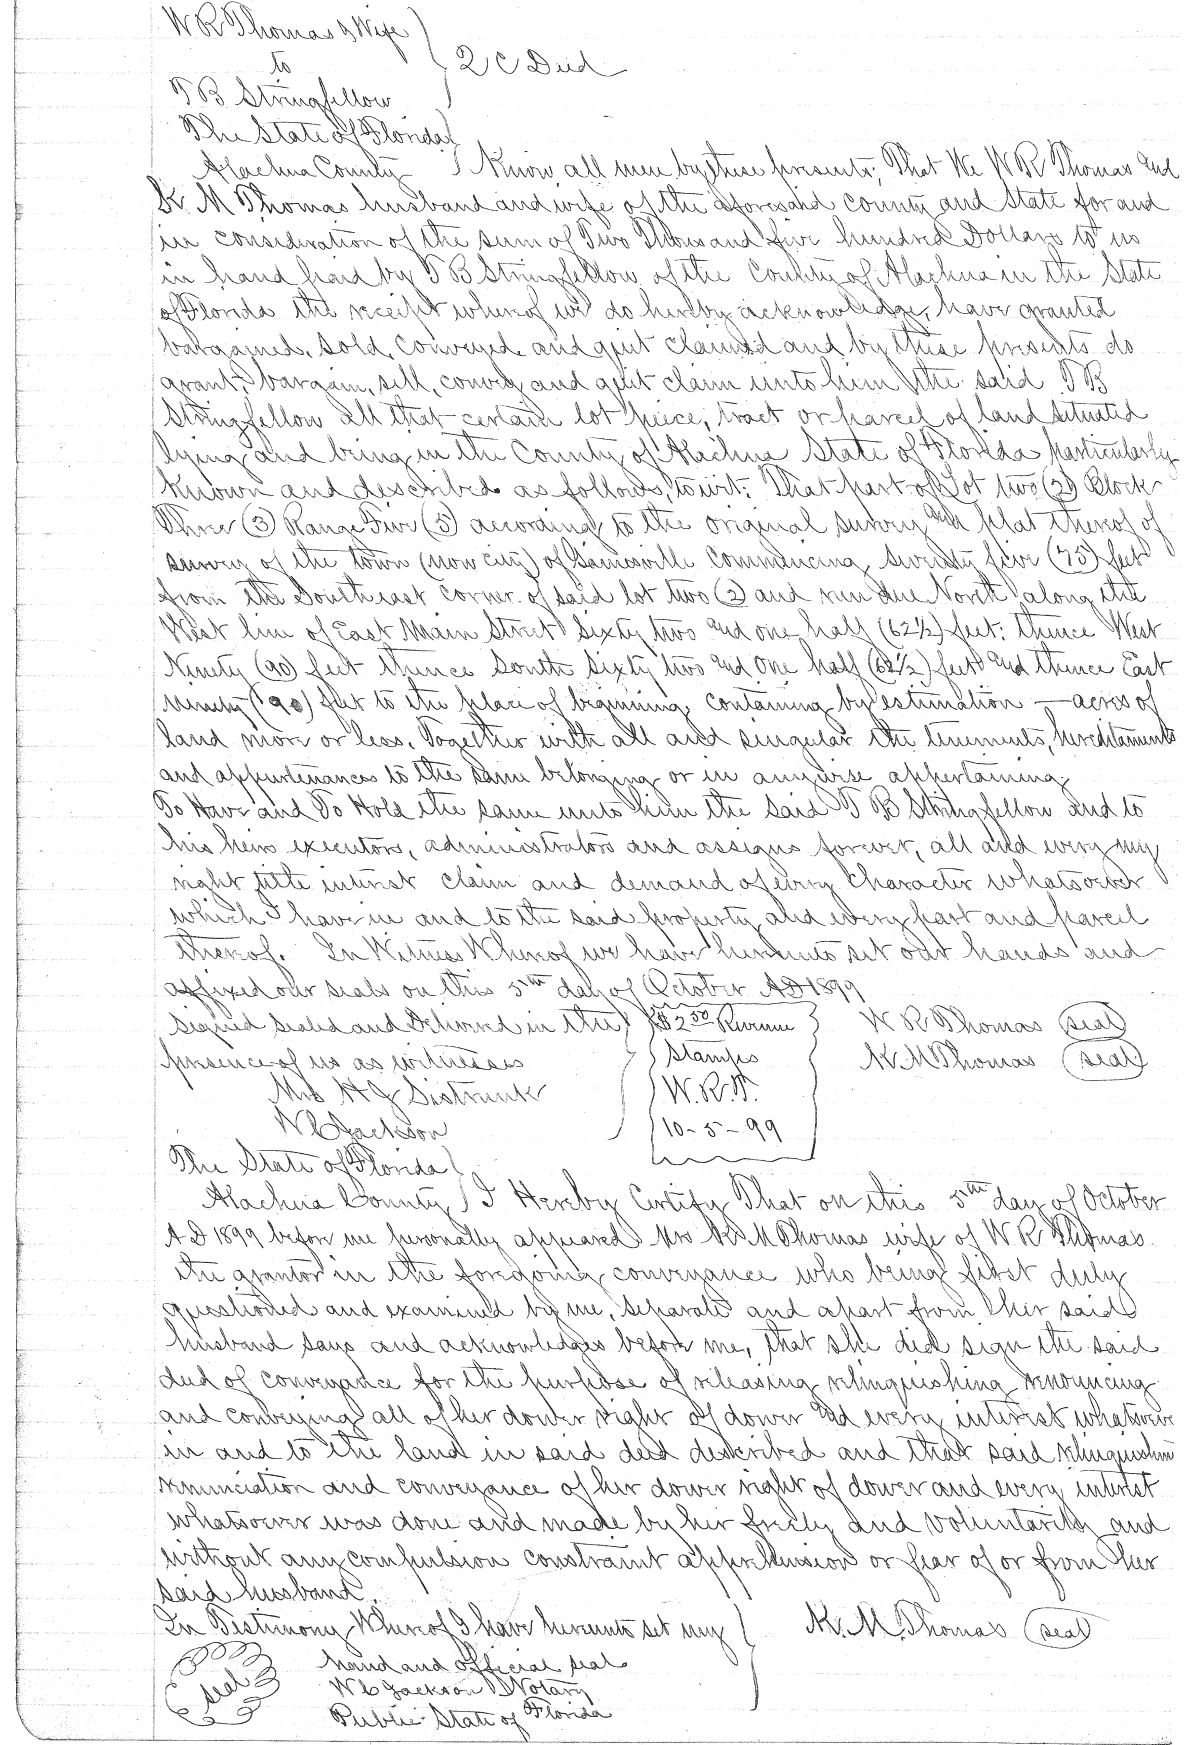 W R Thomas & Wife
to
T B Stringfellow
Q C Deed
The State of Florida
Alachua County Know all men by these presents, That We W R Thomas and
K M Thomas husband and wife of the aforesaid County and State for and
in consideration of the sum of Two Thousand five hundred Dollars to us
in hand paid by T B Stringfellow of the County of Alachua in the State
of Florida the receipt whereof we do hereby acknowledge, have granted
bargained, sold, conveyed, and quit claimed and by these presents do
grant, bargain, sell, convey and quit claim unto him the said T B
Stringfellow all that certain lot piece, tract or parcel of land situated
lying and being in the County of Alachua State of Florida particularly
known and described as follows, to wit: That part of Lot two (2) Block
Three (3) Range Five (5) according to the original survey and plat thereof of
survey of the town (now city) of Gainesville Commencing Seventy five (75) feet
from the Southeast corner of said lot two (2) and run due North along the
West line of East Main Street Sixty two and one half (62½) feet: thence West
Ninety (90) feet thence South Sixty two and one half (62½) feet and thence East
ninety (90) feet to the place of beginning, containing by estimation — acres of
land more or less. Together with all and singular the tenements, hereditaments
and appurtenances to the same belonging or in anywise appertaining
To Have and To Hold the same unto him the said T B Stringfellow and to
his heirs executors, administrators and assigns forever, all and every my
right title interest claim and demand of every character whatsoever
which I have in and to the said property and every part and parcel
thereof. In Witness Whereof we have hereunto set our hands and
affixed our seals on this 5th day of October AD 1899
Signed sealed and Delivered in the
presence of us as witnesses
Mrs H J Sistrunk
W C Jackson
$2.50 Revenue
Stamps
W. R. T.
10-5-99
W R Thomas (seal)
K M Thomas (seal)
The State of Florida
Alachua County I Hereby Certify That on this 5th day of October
A D 1899 before me personally appeared Mrs K M Thomas wife of W R Thomas
the grantor in the foregoing conveyance who being first duly
questioned and examined by me, separate and apart from her said
husband says and acknowledges before me, that she did sign the said
deed of conveyance for the purpose of releasing relinquishing renouncing
and conveying all of her dower right of dower and every interest whatsoever
in and to the land in said deed described and that said relinquishm
renunciation and conveyance of her dower right of dower and every interest
whatsoever was done and made by her freely and voluntarily and
without any compulsion constraint apprehension or fear of or from her
said husband.
In Testimony Whereof I have hereunto set my
hand and official seal
W C Jackson Notary
Public State of Florida
seal
K. M. Thomas (seal)